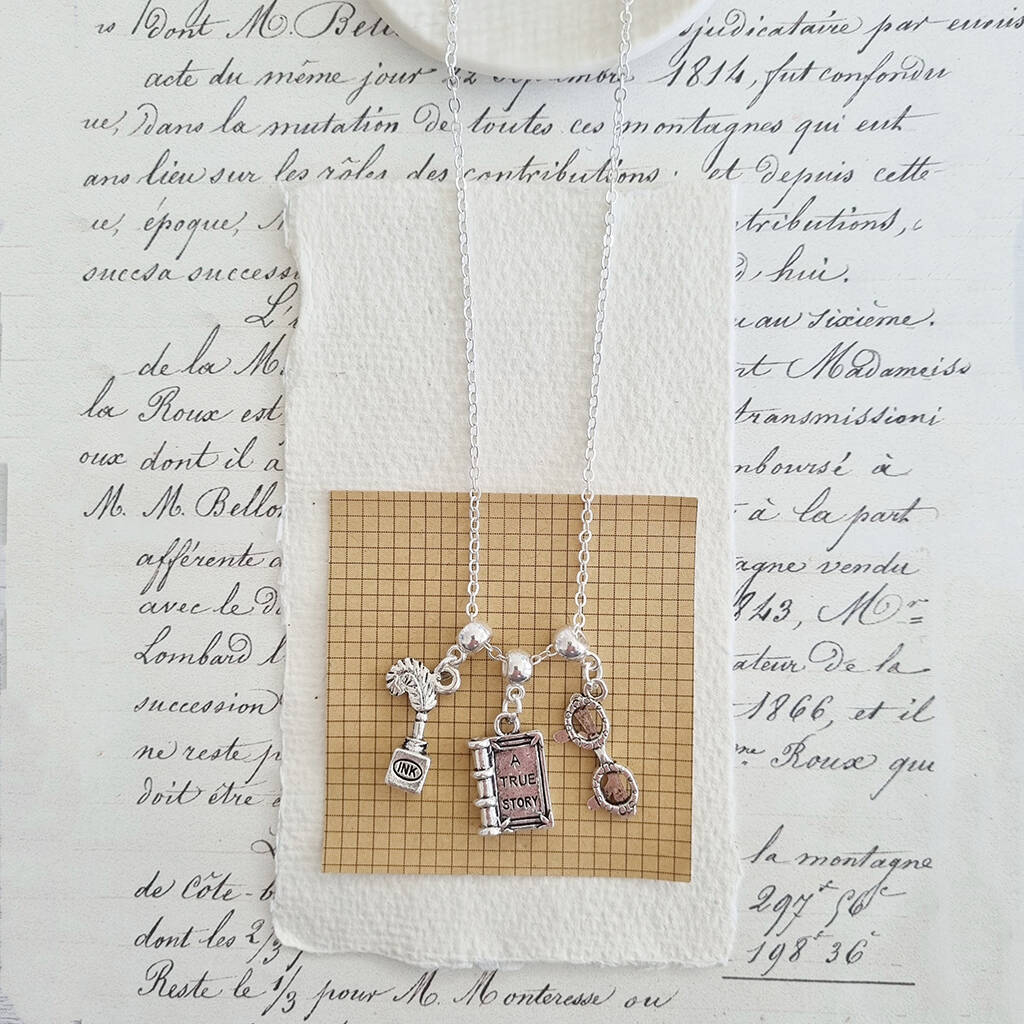 dont M. Bell
judicataire par
acte du même jour 22 Septembre 1814, fut confondu
ue, dans la mutation de toutes ces montagnes qui eut
ans lieu sur les rôles des contributions. et depuis cette
ue, époque,
tributions,
succsa success
hui.
L'
au sixième.
de la M.
nt Madameiss
la Roux est
transmissioni
oux dont il a
mboursé à
M. M. Bello
à la part
afférente a
agne vendu
avec le
843, Mr
Lombard l
ateur de la
succession
1866, et il
ne reste p
Roux qui
doit être
INK
A
TRUE
STORY
la montagne
de Côte-b
297 56
dont les 2/3
198 36
Reste le 1/3 pour M. Monteresse ou